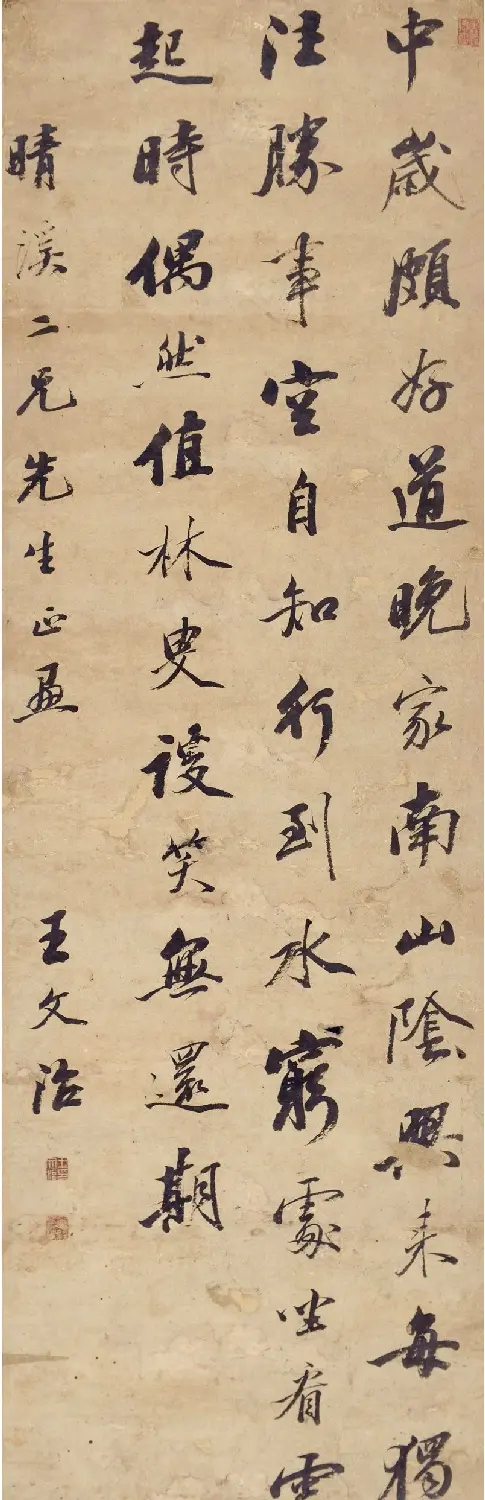 中歲頗好道晚家南山陰興來每獨
往勝事空自知行到水窮處坐看雲
起時偶然值林叟談笑無還期
晴溪二兄先生正畫
王文治